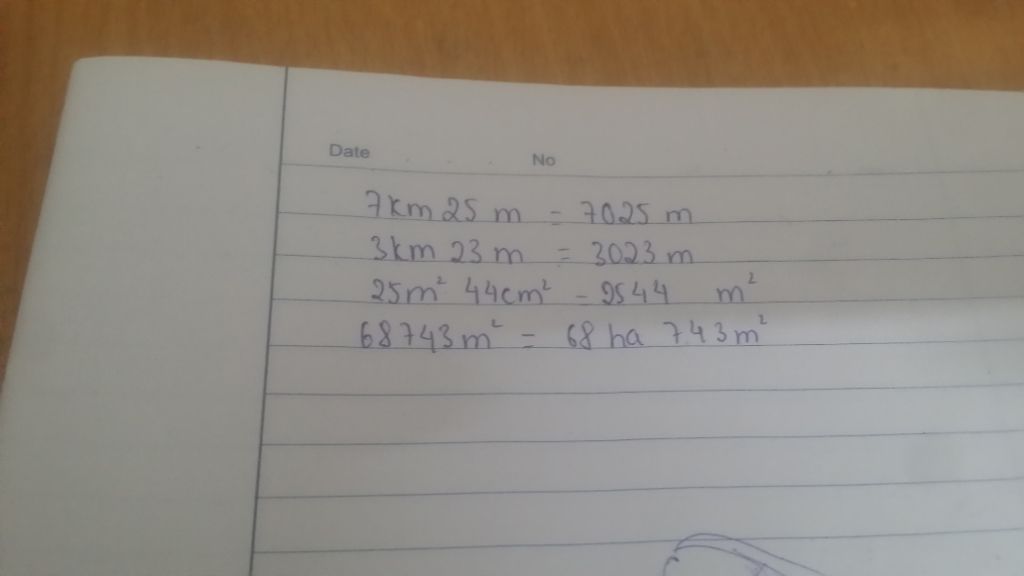 Date No
7km 25 m = 7025 m
3km 23 m = 3023 m
25m² 44cm² = 2544 m²
68743m² = 68 ha 743m²